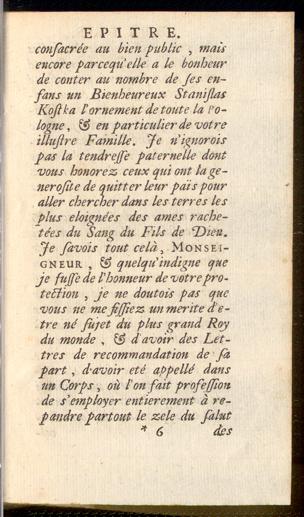 EPITRE.
consacrée au bien public, mais
encore parcequ'elle a le bonheur
de conter au nombre de ses en-
fans un Bienheureux Stanislas
Kostka l'ornement de toute la Po-
logne, & en particulier de votre
illustre Famille. Je n'ignorois
pas la tendresse paternelle dont
vous honorez ceux qui ont la ge-
nerosite de quitter leur païs pour
aller chercher dans les terres les
plus eloignées des ames rache-
tées du Sang du Fils de Dieu.
Je savois tout celà, MONSEI-
GNEUR, & quelqu'indigne que
je fusse de l'honneur de votre pro-
tection, je ne doutois pas que
vous ne me fissiez un merite d'e-
tre né sujet du plus grand Roy
du monde, & d'avoir des Let-
tres de recommandation de sa
part, d'avoir eté appellé dans
un Corps, où l'on fait profession
de s'employer entierement à re-
pandre partout le zele du salut
* 6 des